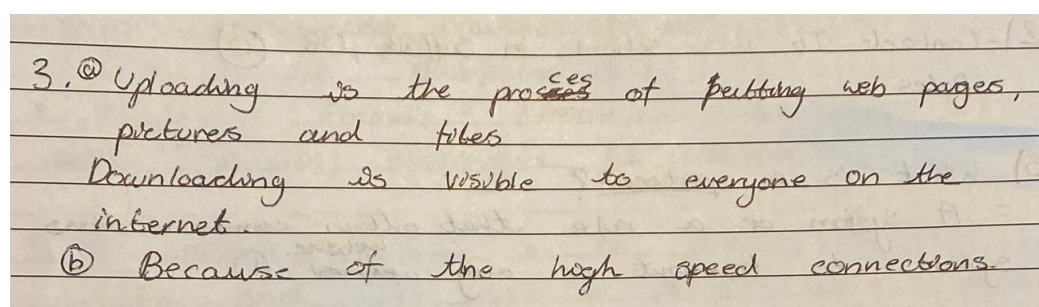 3. ⓐ Uploading is the process of putting web pages,
pictures and files
Downloading is visible to everyone on the
internet.
ⓑ Because of the high speed connections.